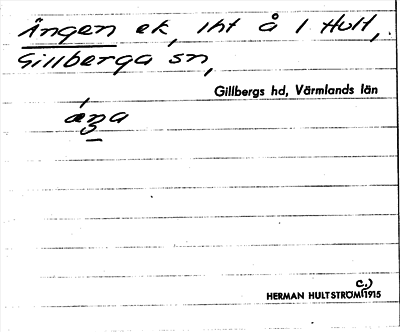 Ängen ek, lht å 1 Hult,
Gillberga sn,
Gillbergs hd, Värmlands län
HERMAN HULTSTRÖM c.) 1915